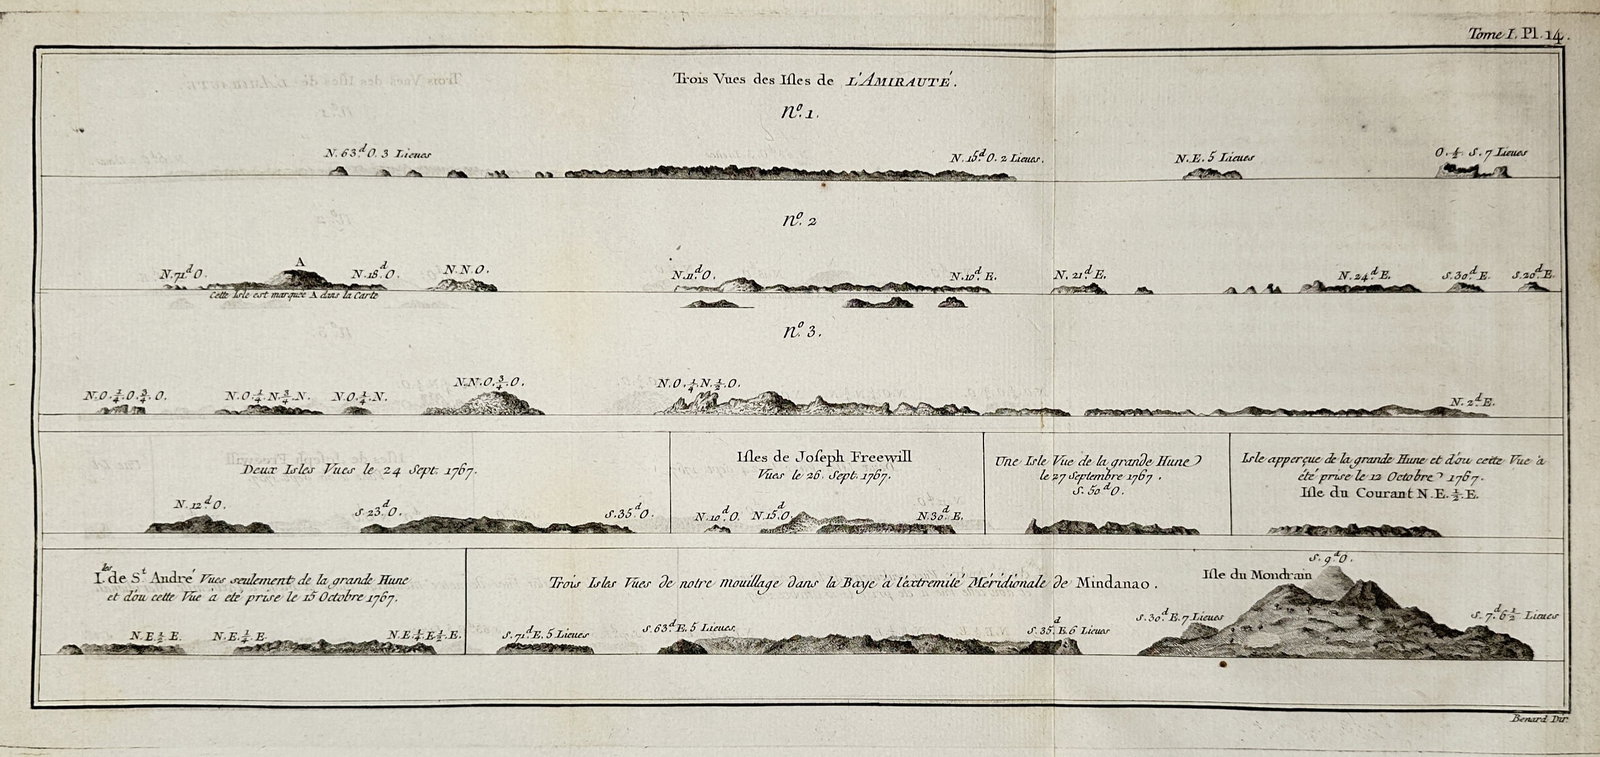 Tome I. Pl. 14.
Trois Vues des Isles de L'AMIRAUTÉ.
N.º 1.
N. 63.d O. 3 Lieues
N. 15.d O. 2 Lieues.
N. E. 5 Lieues
O. ¼ S. 7 Lieues
N.º 2
N. 71.d O.
A
N. 18.d O.
N. N. O.
N. 11.d O.
N. 10.d E.
N. 21.d E.
N. 24.d E.
S. 30.d E.
S. 20.d E.
Cette Isle est marquée A dans la Carte
N.º 3.
N. O. ¼ O. ¾ O.
N. O. ¼ N. ¾ N.
N. O. ¼ N.
N. N. O. ¾ O.
N. O. ¼ N. ½ O.
N. 2.d E.
Deux Isles Vues le 24 Sept. 1767.
N. 12.d O.
S 23.d O.
S. 35.d O.
Isles de Joseph Freewill
Vues le 26. Sept. 1767.
N. 10.d O.
N. 15.d O.
N. 30.d E.
Une Isle Vue de la grande Hune
le 27 Septembre 1767.
S. 50.d O.
Isle apperçue de la grande Hune et d'ou cette Vue à
été prise le 12 Octobre 1767.
Isle du Courant N. E. ½ E.
I.les de S.t André Vues seulement de la grande Hune
et d'ou cette Vue à eté prise le 15 Octobre 1767.
N. E. ½ E.
N. E. ¼ E.
N. E. ¼ E. ½ E.
Trois Isles Vues de notre mouillage dans la Baye a l'extremité Méridionale de Mindanao.
S. 71.d E. 5 Lieues
S. 63.d E. 5 Lieues.
S. 35.d E. 6 Lieues
S. 9.d O.
Isle du Mondrain
S. 30.d E. 7 Lieues
S. 7.d 6 ½ Lieues
Benard Dir.